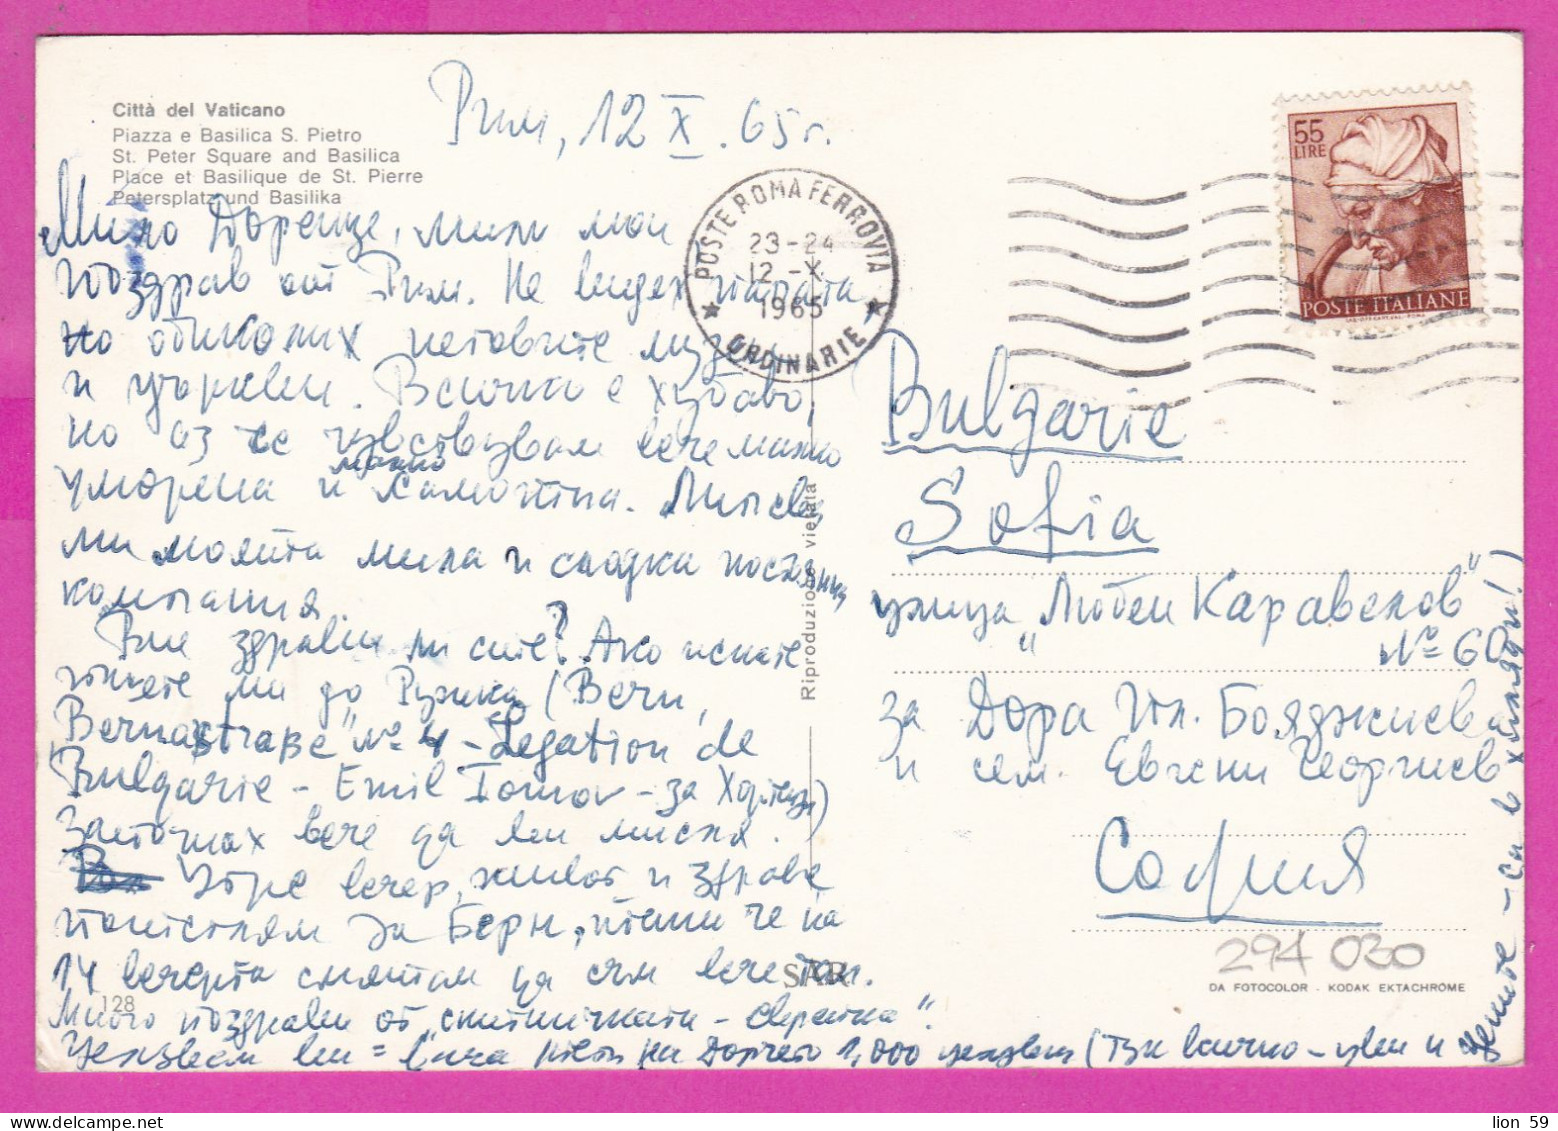 Città del Vaticano
Piazza e Basilica S. Pietro
St. Peter Square and Basilica
Place et Basilique de St. Pierre
Petersplatz und Basilika
Рим, 12 X. 65 г.
Мила Доренце, мили мои
поздрав от Рим. Не видех папата
но обиколих неговите музеи
и църкви. Всичко е хубаво,
но аз се чувствувам вече малко
уморена и малко самотна. Липсва
ми моята мила и сладка постоянна
компания.
Вие здрави ли сте? Ако искате
пишете ми до Румяна (Bern,
Bernastraße № 4 - Legation de
Bulgarie - Emil Tomov - за
започнах вече да ви мисля.
Утре вечер, жива и здрава
пътувам за Берн, че на
14 вечерта смятам да съм вече там.
Много поздрави от
Целувам ви = на Дорчето 1,000 целувки (тук всичко - цени и
- са в хиляди!)
POSTE ROMA FERROVIA
23-24
12-X
1965
ORDINARIE
55
LIRE
POSTE ITALIANE
Bulgarie
Sofia
улица "Любен Каравелов"
№ 60
за Дора Ил. Бояджиева
и сем. Евгени Георгиев
София
294 030
DA FOTOCOLOR - KODAK EKTACHROME
Riproduzione vietata
SAR
128
lion 59